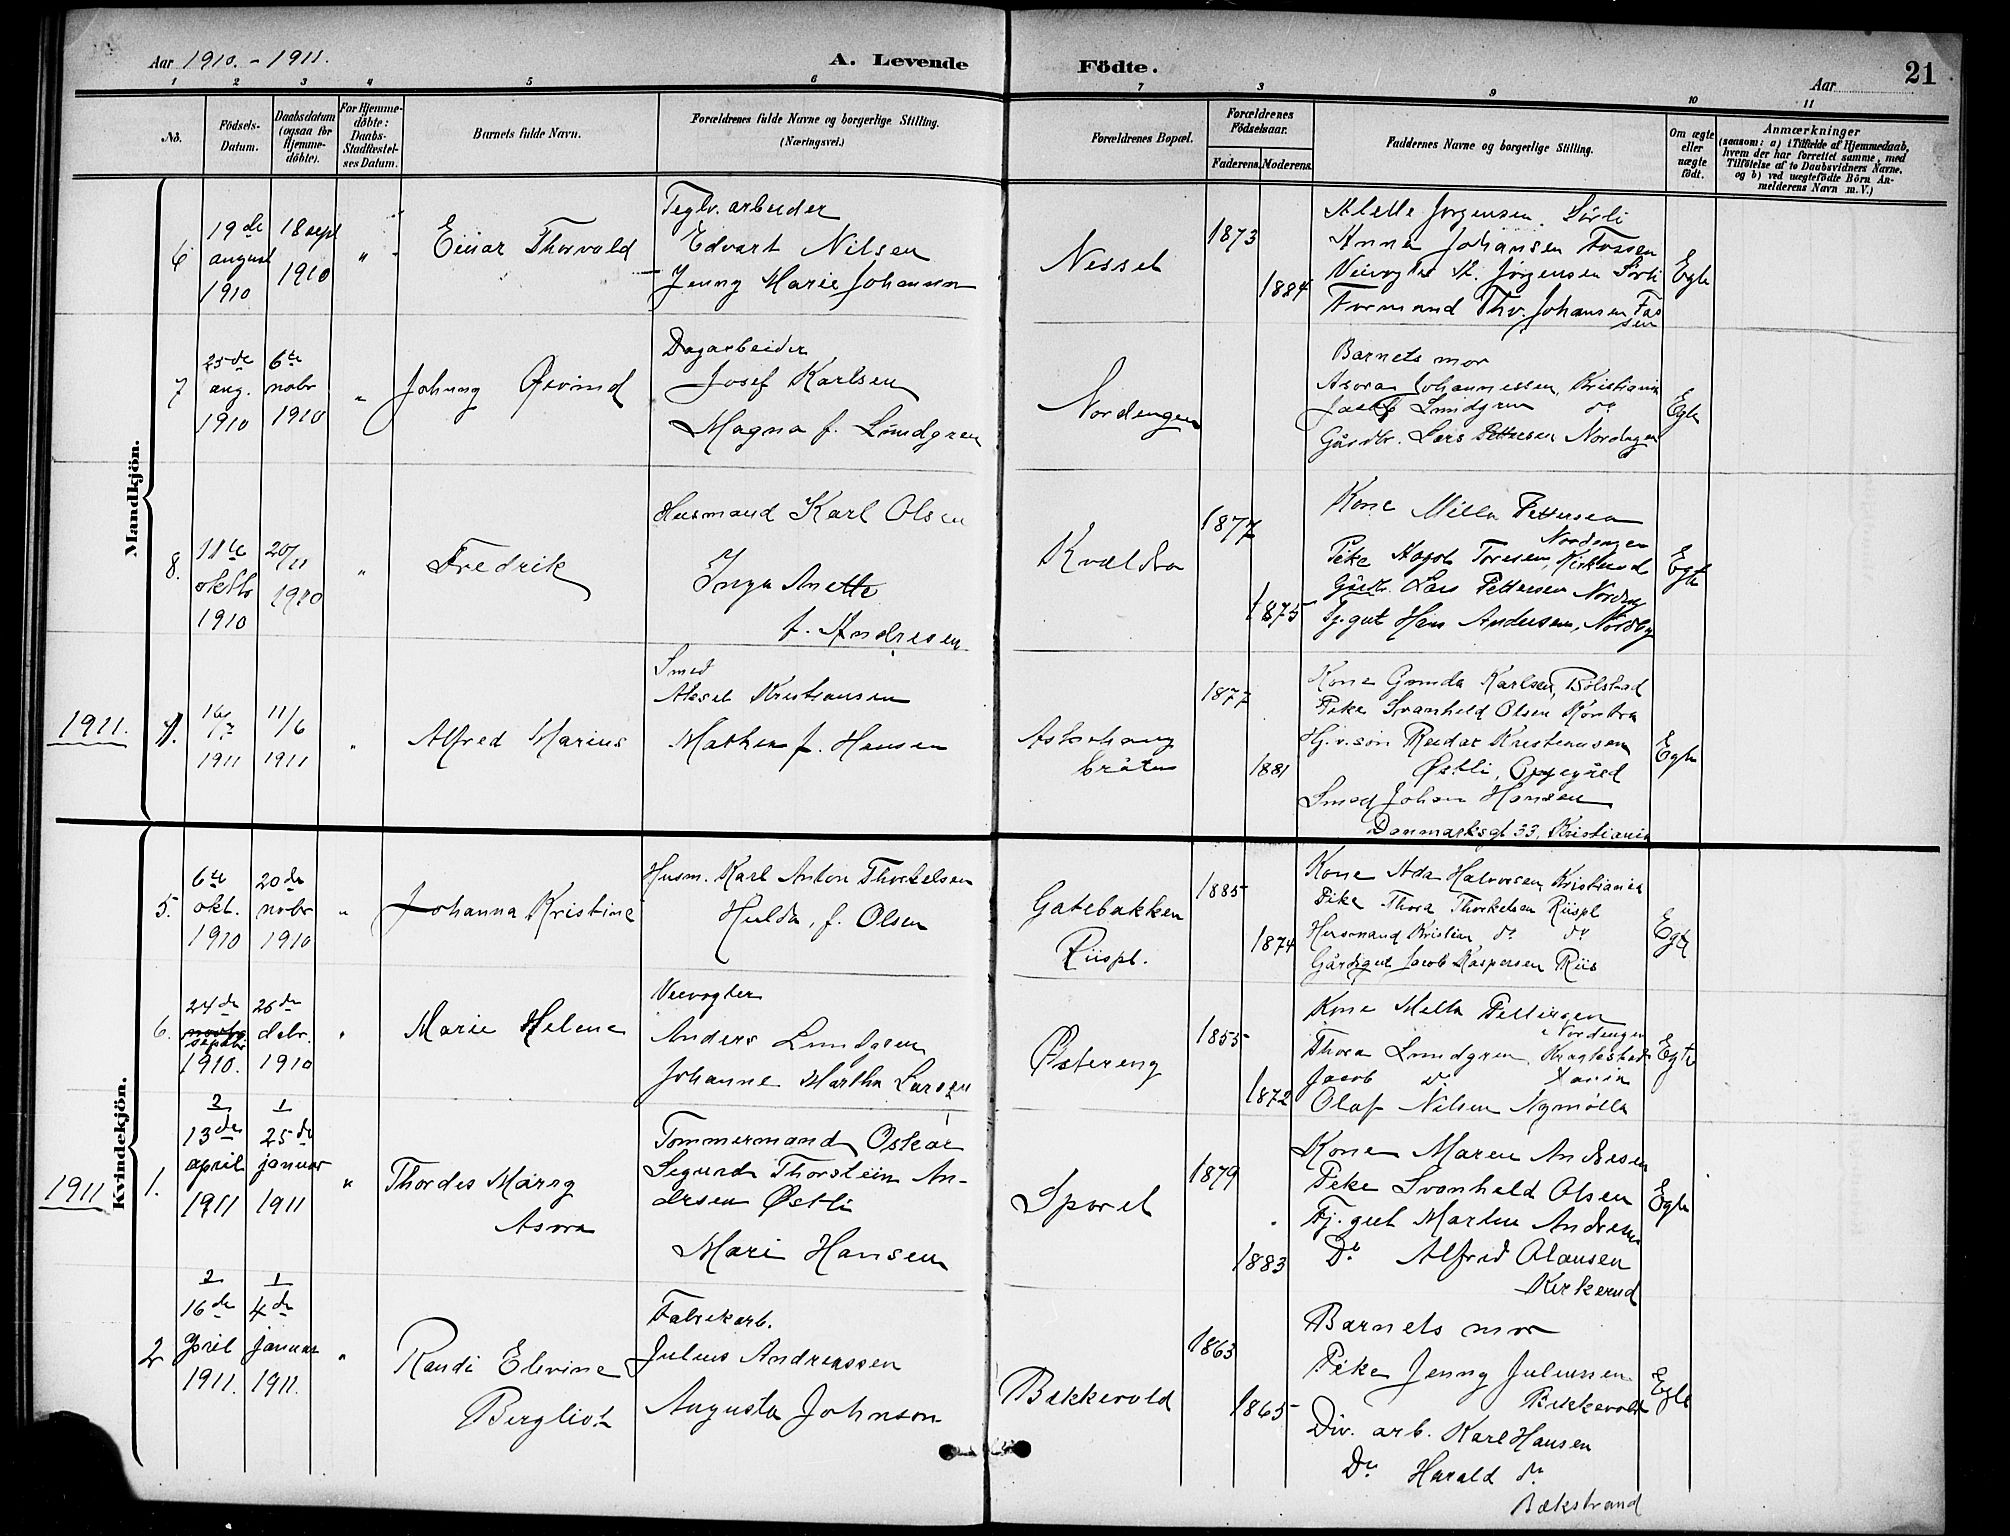 Aar 1910. - 1911.
A. Levende
Födte.
Aar
21
1 2 3 4 5 6 7 8 9 10 11
No.
Födsels-
Datum.
Daabsdatum
(ogsaa for
Hjemme-
döbte).
For Hjemme-
döbte:
Daabs-
Stadfæstel-
ses Datum.
Barnets fulde Navn.
Forældrenes fulde Navne og borgerlige Stilling.
(Næringsvei.)
Forældrenes Bopæl.
Forældrenes
Födselsaar.
Faderens. Moderens.
Faddernes Navne og borgerlige Stilling.
Om ægte
eller
uægte
födt.
Anmærkninger
(saasom: a) i Tilfælde af Hjemmedaab,
hvem der har forrettet samme, med
Tilföielse af to Daabsvidners Navne.
og b) ved uægtefödte Börn An-
melderens Navn m. V.)
Mandkjön.
6
19de
august
1910
18 sept
1910
"
Einar Thorvald
Teglv. arbeider
Edvart Nilsen
Jenny Marie Johansen
Nesset
1873
1884
Jørgensen Sørli
Anna Johansen Fossen
Jørgensen Sørli
Formand Thv. Johansen Fos
sen
Egte
7
25de
aug.
1910
6te
nobr
1910
"
Johnny Øivind
Dagarbeider
Josef Karlsen
Magna f. Lundgren
Nordengen
Barnets mor
Asora Johannessen, Kristiania
Lundgren do
Gårdbr. Lars Pettersen Nordengen
Egte
8.
11te
oktbr
1910
20/11
1910
"
Fredrik
Husmand Karl Olsen
Inga Anette
f. Andresen
1877
1875
Kone Milla Pettersen
Nordengen
Pike Toresen, Kirkerud
Gårdbr. Lars Pettersen
Tj.gut Hans Andersen, Nordby
Egte
1911.
1.
1911
11/6
1911
"
Alfred Marius
Smed
Aksel Kristiansen
Mathea f. Hansen
bråten
1877
1881
Kone Gunda Karlsen, Bølstad
Pike Svanhild Olsen
Reidar Kristiansen
Østli, Oppegård
Smed Johan Hansen
Danmarksgt 33, Kristiania
Egte
Kvindekjön.
5.
6te
okt.
1910
20de
nobr
1910
"
Johanna Kristine
Husm. Karl Anton Thorkelsen
Hulda, f. Olsen
Gatebakken
Riispl.
1885
1874
Kone Ada Halvorsen Kristiania
Pike Thora Thorkelsen Riispl
Husmand Kristian do do
Gårdsgut Jacob Kaspersen Riis
Egte
6.
24de
septbr
1910.
26de
debr.
1910
"
Marie Helene
Veivogter
Anders Lundgren
Johanne Martha Larsen
Østereng
1855
1872
Kone Milla Pettersen
Nordengen
Thora Lundgren
Jacob do Xania
Olaf Nilsen Nymølla
Egte
1911
1.
2
13de
april
1911
1
25de
januar
1911
"
Thordes Mary
Asora
Tømmermand Oskar
Sigurd Thorstein An-
dersen Østli
Mari Hansen
Sporet
1879
1883
Kone Maren Andresen
Pike Svanhild Olsen
Tj.gut Martin Andresen
Do Alfred Olausen
Kirkerud
Egte
2
2
16de
april
1911.
1
4de
januar
1911.
"
Randi Elevine
Bergliot
Fabrikarb.
Julius Andreassen
Augusta Johnson
Bakkevold
1863
1865
Barnets mor
Pike Jenny Juliussen
Bakkevold
Div. arb. Karl Hansen
Do Harald do
Bækstrand
Egte